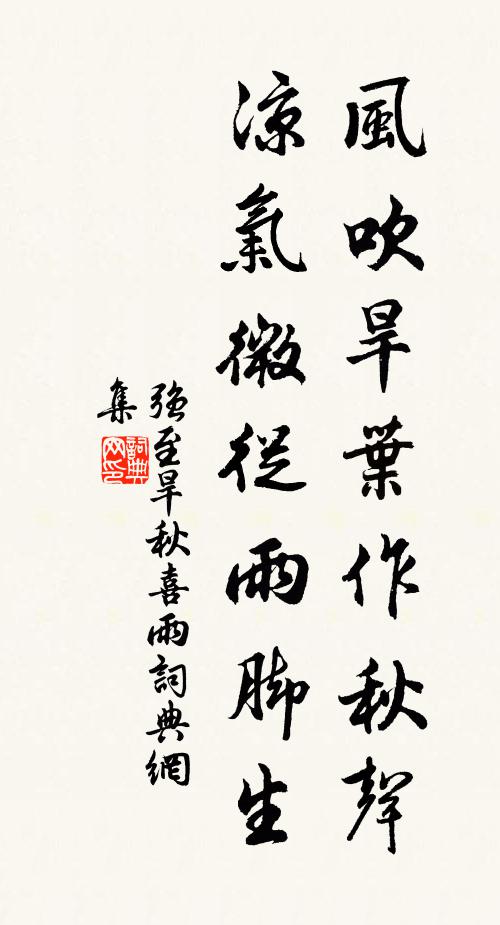 風吹旱葉作秋聲
涼氣微從雨脚生
強至旱秋喜雨詞典網
集
詞典
网印